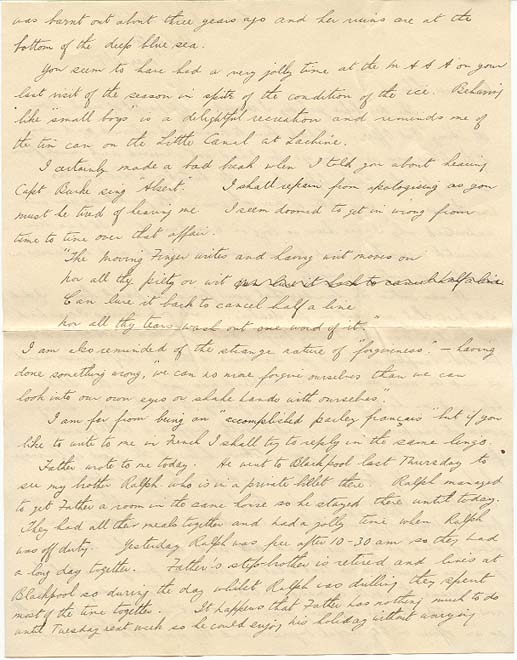 was burnt out about three years ago and her ruins are at the
bottom of the deep blue sea.
You seem to have had a very jolly time at the M A A A on your
last visit of the season in spite of the condition of the ice. Behaving
like "small boys" is a delightful recreation and reminds me of
the tin can on the Little Canal at Lachine.
I certainly made a bad break when I told you about hearing
Capt Burke sing "Absent". I shall refrain from apologising as you
must be tired of hearing me. I seem doomed to get in wrong from
time to time over that affair.
"The Moving Finger writes and having writ moves on
Nor all thy piety or wit can lure it back to cancel half a line
Can lure it back to cancel half a line
Nor all thy tears wash out one word of it."
I am also reminded of the strange nature of "forgiveness" – having
done something wrong, "we can no more forgive ourselves than we can
look into our own eyes or shake hands with ourselves".
I am far from being an "accomplished parley français" but if you
like to write to me in French I shall try to reply in the same lingo.
Father wrote to me today. He went to Blackpool last Thursday to
see my brother Ralph who is in a private billet there. Ralph managed
to get Father a room in the same house so he stayed there until today.
They had all their meals together and had a jolly time when Ralph
was off duty. Yesterday Ralph was free after 10-30 am so they had
a long day together. Father's step-brother is retired and lives at
Blackpool so during the day whilst Ralph was drilling they spent
most of the time together. It happens that Father has nothing much to do
until Tuesday next week so he could enjoy his holiday without worrying